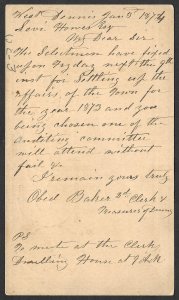 West Dennis Jan 5th 1874
Seve Howes Esq
My Dear Sir
The Selectmen have fixed
upon Friday next the 9th
inst for Settling up the
affairs of the Town for
the year 1873 and you
being chosen one of the
auditing committee
will attend without
fail &c
I remain yours truly
Obed Baker 2d Clerk &
Treasurer of Dennis
PS
To meet at the Clerks
Dwelling House at 9 A.M.